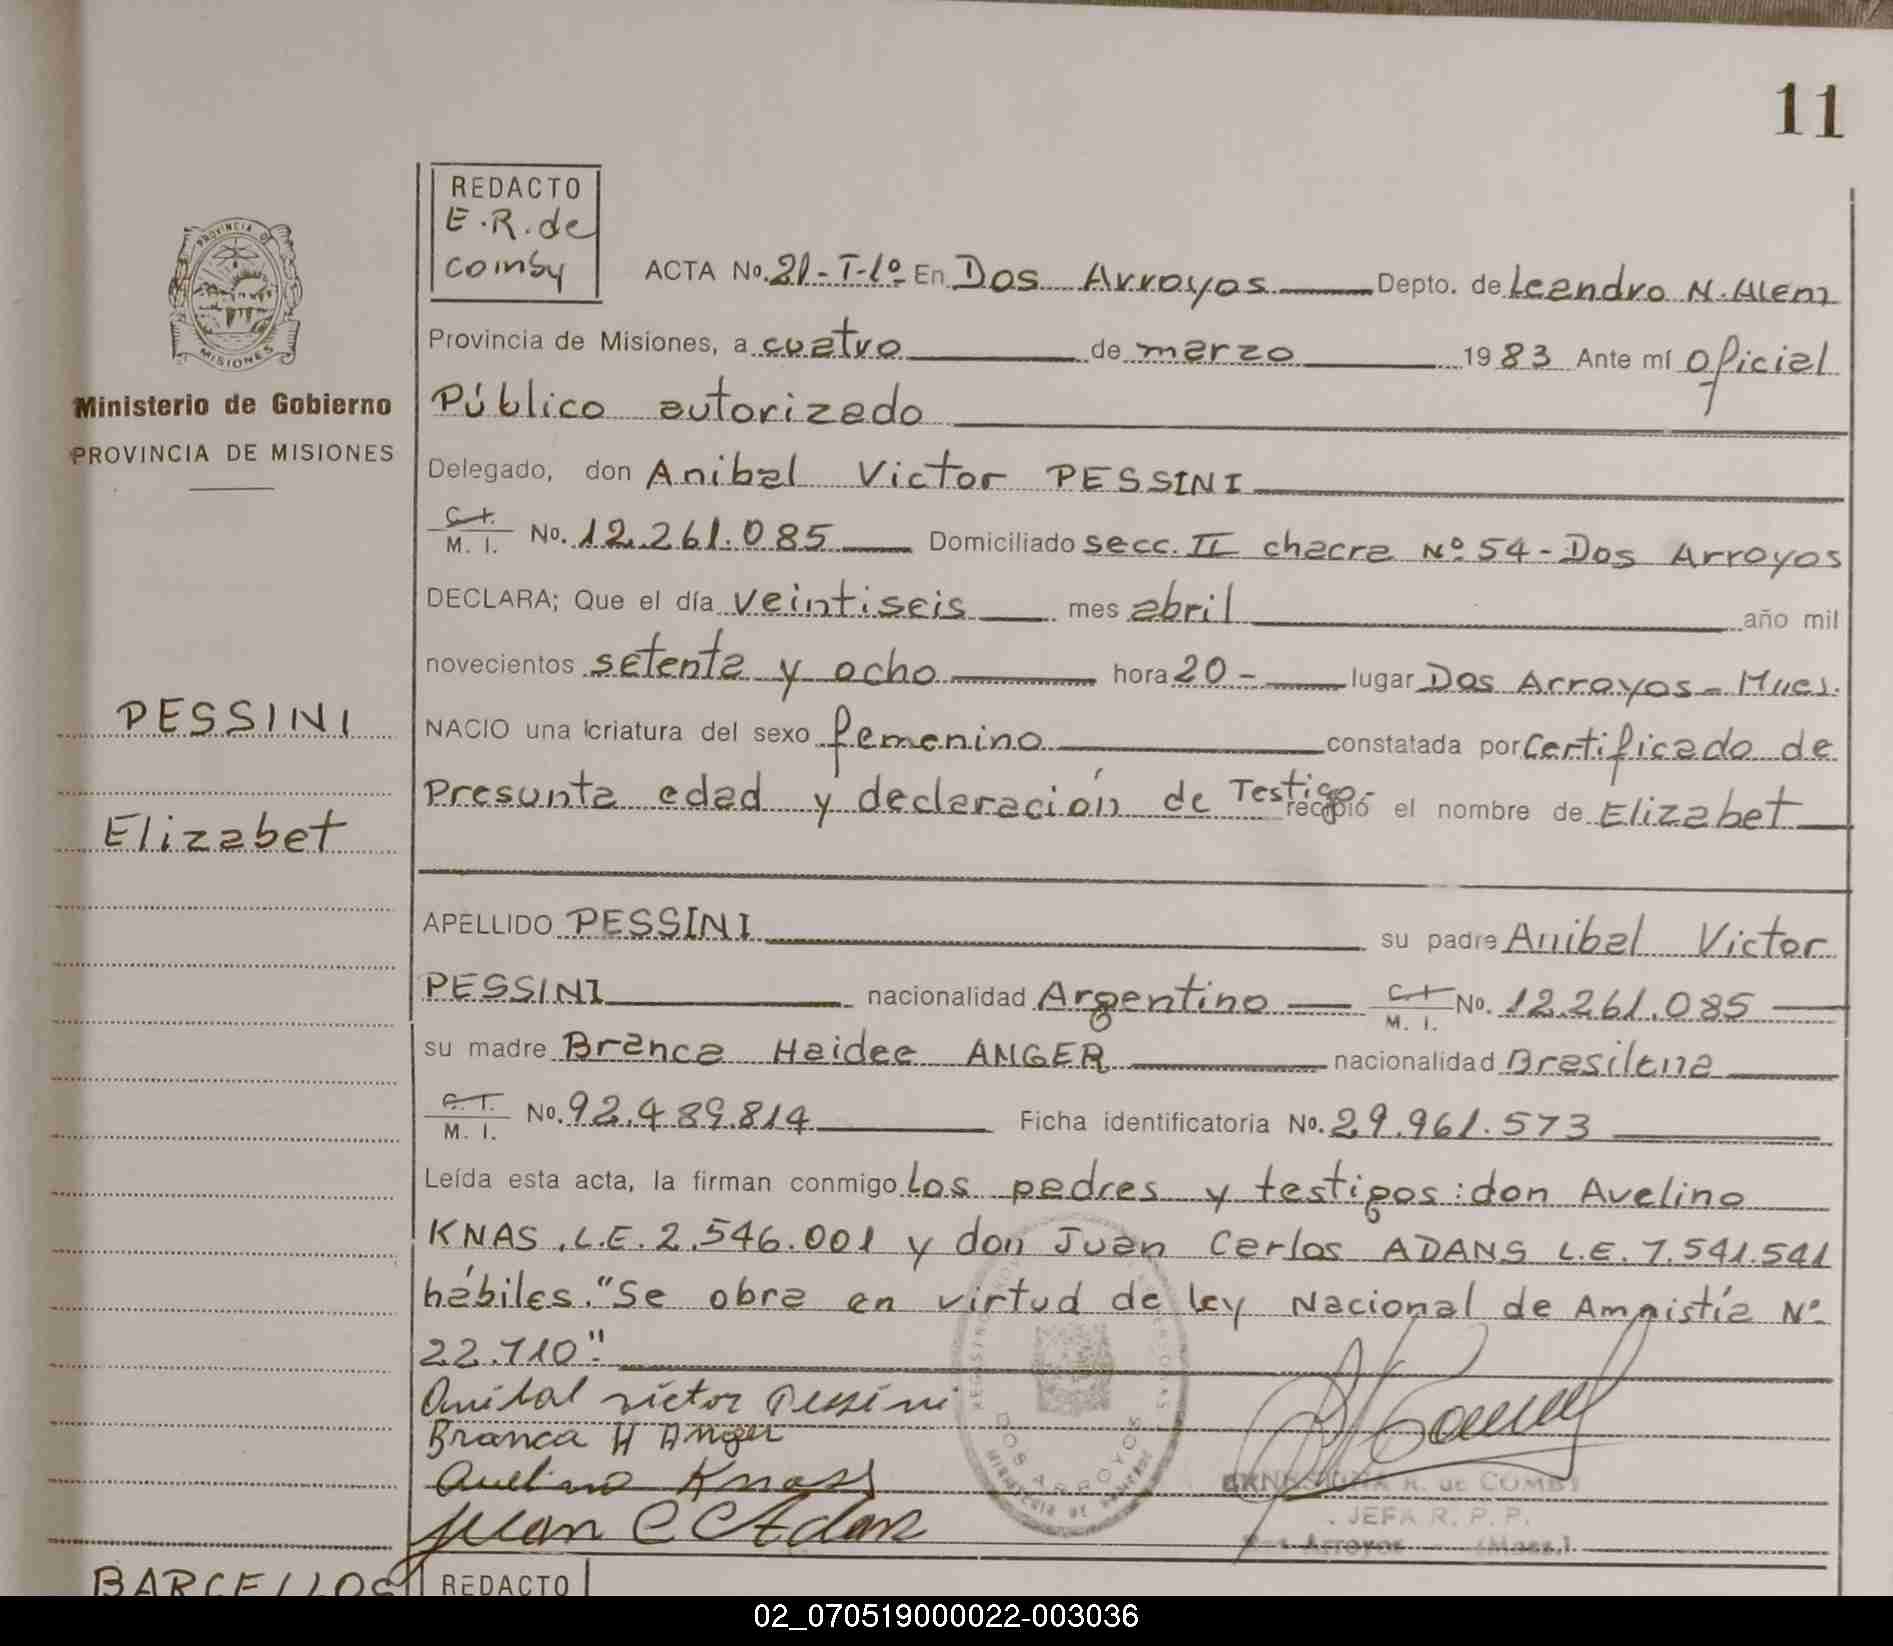 11
REDACTO
E.R.de
comby
PROVINCIA DE
MISIONES
ACTA No. 21-T-1º En Dos Arroyos Depto. de Leandro N. Alem
Provincia de Misiones, a cuatro de marzo 1983 Ante mí oficial
Ministerio de Gobierno
Público autorizado
PROVINCIA DE MISIONES
Delegado, don Anibal Victor PESSINI
C.I.
M. I. No. 12.261.085 Domiciliado secc. II chacra Nº 54 - Dos Arroyos
DECLARA; Que el día veintiseis mes abril año mil
novecientos setenta y ocho hora 20 - lugar Dos Arroyos -
PESSINI
NACIO una criatura del sexo femenino constatada por Certificado de
Presunta edad y declaración de Testigo- recibió el nombre de Elizabet
Elizabet
APELLIDO PESSINI su padre Anibal Victor
PESSINI nacionalidad Argentino C.I. M. I. No. 12.261.085
su madre Branca Haidee ANGER nacionalidad Brasilena
C.I.
M. I. No. 92.489.814 Ficha identificatoria No. 29.961.573
Leída esta acta, la firman conmigo los padres y testigos: don Avelino
KNAS. L.E. 2.546.001 y don Juan Carlos ADANS L.E. 7.541.541
hábiles. "Se obra en virtud de ley Nacional de Amnistía Nº
22.710".
Anibal victor Pessini
Branca H Anger
Avelino Knass
Juan C Adans
DOS ARROYOS
R. de COMBY
JEFA R. P. P.
Arroyos (Mnes.)
BARCELLOS
REDACTO
02_070519000022-003036